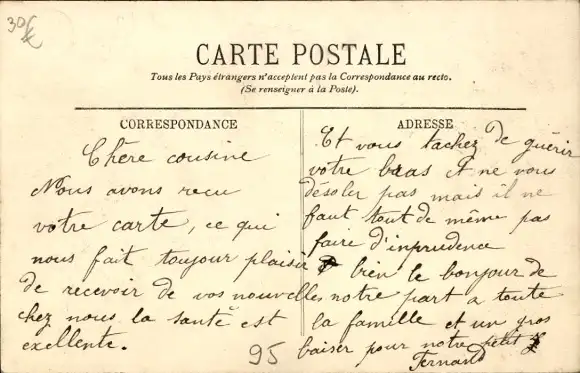 30
CARTE POSTALE
Tous les Pays étrangers n'acceptent pas la Correspondance au recto.
(Se renseigner à la Poste).
CORRESPONDANCE
Chère cousine
Nous avons recu
votre carte, ce qui
nous fait toujour plaisir
de recevoir de vos nouvelles
chez nous la santé est
exellente.
95
ADRESSE
Et vous tachez de guérir
votre bras et ne vous
désoler pas mais il ne
faut tout de même pas
faire d'inprudence
bien le bonjour de
notre part a toute
la famille et un gros
baiser pour notre petit
Fernand